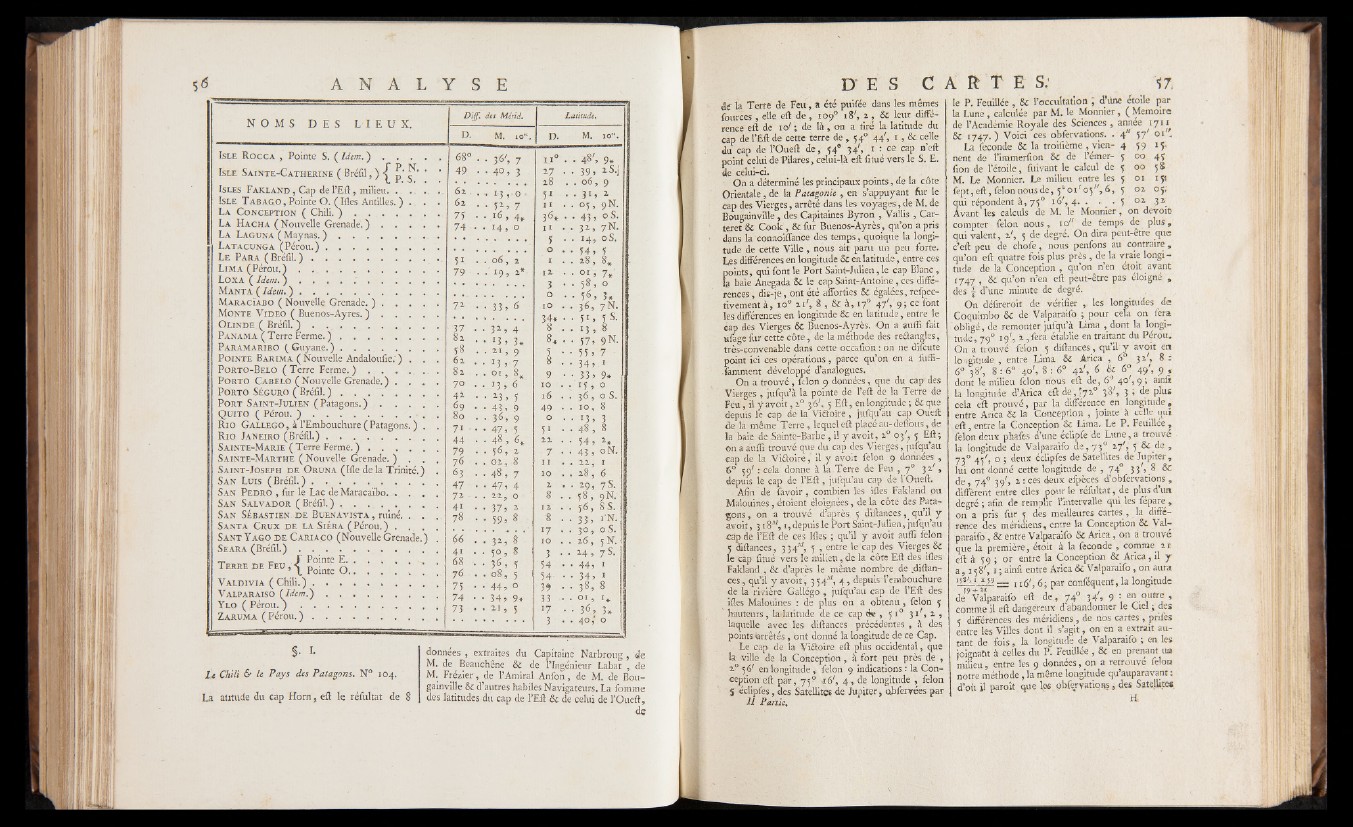 56 ANALYSE
NOMS DES LIEUX.
Diff. des Mérid. Latitude.
D. M. 10es. D. M. 10es.
ISLE ROCCA , Pointe S. ( Idem. ) . . . . . 68° . . 36′, 7 11° . . 48′, 9*
ISLE SAINTE-CATHERINE ( Bréſil, ) { P. N. . . 49 . . 40, 3 27 . . 39, 2S.
P. S. . . 28 . . 06, 9
ISLES FAKLAND , Cap de l'Eſt , milieu. . . . . 62 . . 13, 0 51 . . 31, 2
ISLE TABAGO , Pointe O. ( Iſles Antilles. ) . . . 62 . . 52, 7 11 . . 05, 9N.
LA CONCEPTION ( Chili. ) . . . . . . 75 . . 16, 4* 36* . . 43, 0S.
LA HACHA ( Nouvelle Grenade. ) . . . . . 74 . . 14, 0 11 . . 32, 7N.
LA LAGUNA ( Maynas. ) . . . . . . . 5 . . 14, 0S.
LATACUNGA ( Pérou. ) . . . . . . . 0 . . 54, 5
LE PARA ( Bréſil. ) . . . . . . . . 51 . . 06, 2 1 . . 28, 8*
LIMA ( Pérou. ) . . . . . . . . . 79 . . 19, 2* 12 . . 01, 7*
LOXA ( Idem. ) . . . . . . . . . 3 . . 58, 0
MANTA ( Idem. ) . . . . . . . . . 0 . . 56, 3*
MARACIABO ( Nouvelle Grenade. ) . . . . . 72 . . 33, 6 10 . . 36, 7N.
MONTE VIDEO ( Buenos-Ayres. ) . . . . . 34* . . 51, 5S.
OLINDE ( Bréſil. ) . . . . . . . . 37 . . 32, 4 8 . . 13, 8
PANAMA ( Terre Ferme. ) . . . . . . . 82 . . 13, 3* 8* . . 57, 9N.
PARAMARIBO ( Guyane. ) . . . . . . . 58 . . 21, 9 5 . . 55, 7
POINTE BARIMA ( Nouvelle Andalouſie. ) . . . 62 . . 13, 7 8 . . 34, 1
PORTO-BELO ( Terre Ferme. ) . . . . . 82 . . 01, 8* 9 . . 33, 9*
PORTO CABELO ( Nouvelle Grenade. ) . . . . 70 . . 13, 6 10 . . 15, 0
PORTO SÉGURO ( Bréſil. ) . . . . . . . 42 . . 23, 5 16 . . 36, 0S.
PORT SAINT-JULIEN ( Patagons. ) . . . . . 69 . . 43, 9 49 . . 10, 8
QUITO ( Pérou. ) . . . . . . . . . 80 . . 36, 9 0 . . 13, 3
RIO GALLEGO , à l'Embouchure ( Patagons. ) . . 71 . . 47, 5 51 . . 48, 8
RIO JANEIRO ( Bréſil. ) . . . . . . . 44 . . 48, 6* 22 . . 54, 2*
SAINTE-MARIE ( Terre Ferme. ) . . . . . 79 . . 56, 2 7 . . 43, 0N.
SAINTE-MARTHE ( Nouvelle Grenade. ) . . . 76 . . 02, 8 11 . . 22, 1
SAINT-JOSEPH DE ORUNA ( Iſle de la Trinité. ) . 63 . . 48, 7 10 . . 28, 6
SAN LUIS ( Bréſil. ) . . . . . . . . 47 . . 47, 4 2 . . 29, 7S.
SAN PEDRO , ſur le Lac de Maracaïbo. . . . . 72 . . 22, 0 8 . . 58, 9N.
SAN SALVADOR ( Bréſil. ) . . . . . . . 41 . . 37, 2 12 . . 56, 8S.
SAN SÉBASTIEN DE BUENAVISTA , ruiné. . . . 78 . . 59, 8 8 . . 33, 1N.
SANTA CRUX DE LA SIÉRA ( Pérou. ) . . . . 17 . . 30, 0S.
SANT YAGO DE CARIACO ( Nouvelle Grenade. ) . 66 . . 32, 8 10 . . 26, 5N.
SEARA ( Bréſil. ) . . . . . . . . . 41 . . 50, 8 3 . . 24, 7S.
TERRE DE FEU , { Pointe E. . . . . . . 68 . . 36, 5 54 . . 44, 1
Pointe O. . . . . . . 76 . . 08, 5 54 . . 34, 1
VALDIVIA ( Chili. ) . . . . . . . . 75 . . 44, 0 39 . . 38, 8
VALPARAISO ( Idem. ) . . . . . . . . 74 . . 34, 9* 33 . . 01, 1*
YLO ( Pérou. ) . . . . . . . . . 73 . . 21, 5 17 . . 36, 3*
ZARUMA ( Pérou. ) . . . . . . . . 3 . . 40, 0
§. I.
Le Chili & le Pays des Patagons. N° 104.
La atitude du cap Horn, eſt le réſultat de 8
données , extraites du Capitaine Narbroug , de
M. de Beauchêne & de l'Ingénieur Labat , de
M. Frézier , de l'Amiral Anſon , de M. de Bou-
gainville & d'autres habiles Navigateurs. La ſomme
des latitudes du cap de l'Eſt & de celui de l'Oueſt,
de
DES CARTES. 57
de la Terre de Feu, a été puiſée dans les mêmes
ſources , elle eſt de , 109° 18′, 2 , & leur diffé-
rence eſt de 10′ ; de là , on a tiré la latitude du
cap de l'Eſt de cette terre de , 54° 44′, 1 , & celle
du cap de l'Oueſt de, 54° 34′, 1 : ce cap n'eſt
point celui de Pilares, celui-là eſt ſitué vers le S. E.
de celui-ci.
On a déterminé les principaux points, de la côte
Orientale , de la Patagonie , en s'appuyant ſur le
cap des Vierges, arrêté dans les voyages, de M. de
Bougainville , des Capitaines Byron , Vallis , Car-
teret & Cook , & ſur Buenos-Ayrès, qu'on a pris
dans la connoiſſance des temps, quoique la longi-
tude de cette Ville , nous ait paru un peu forte.
Les différences en longitude & en latitude, entre ces
points, qui ſont le Port Saint-Julien, le cap Blanc ,
la baie Anegada & le cap Saint-Antoine, ces diffé-
rences , dis-je , ont été aſſorties & égalées, reſpec-
tivement à, 10° 21′, 8 , & à, 17° 47′, 9 ; ce ſont
les différences en longitude & en latitude, entre le
cap des Vierges & Buenos-Ayrès. On a auſſi fait
uſage ſur cette côte, de la méthode des rectangles,
très-convenable dans cette occaſion : on ne diſcute
point ici ces opérations, parce qu'on en a ſuffi-
ſamment développé d'analogues.
On a trouvé , ſelon 9 données , que du cap des
Vierges , juſqu'à la pointe de l'eſt de la Terre de
Feu, il y avoit, 2° 36′, 5 Eſt, en longitude ; & que
depuis le cap de la Victoire , juſqu'au cap Oueſt
de la même Terre , lequel eſt placé au-deſſous, de
la baie de Sainte-Barbe , il y avoit, 2° 03′, 5 Eſt ;
on a auſſi trouvé que du cap des Vierges, juſqu'au
cap de la Victoire , il y avoit ſelon 9 données ,
6° 59′ : cela donne à la Terre de Feu , 7° 32′ ,
depuis le cap de l'Eſt , juſqu'au cap de l'Oueſt.
Afin de ſavoir , combien les iſles Fakland ou
Malouines , étoient éloignées , de la côte des Pata-
gons , on a trouvé d'après 5 diſtances , qu'il y
avoit, 318M, 1, depuis le Port Saint-Julien, juſqu'au
cap de l'Eſt de ces Iſles ; qu'il y avoit auſſi ſelon
5 diſtances, 334M, 5 , entre le cap des Vierges &
le cap ſitué vers le milieu, de la côte Eſt des iſles
Fakland , & d'après le même nombre de diſtan-
ces, qu'il y avoit, 354M, 4 , depuis l'embouchure
de la rivière Gallégo , juſqu'au cap de l'Eſt des
iſles Malouines : de plus on a obtenu , ſelon 5
hauteurs, la latitude de ce cap de , 51° 31′, 2 ,
laquelle avec les diſtances précédentes , à des
points arrêtés , ont donné la longitude de ce Cap.
Le cap de la Victoire eſt plus occidental, que
la ville de la Conception , à fort peu près de ,
2° 56′ en longitude , ſelon 9 indications : la Con-
ception eſt par , 75° 16′, 4, de longitude , ſelon
5 éclipſes , des Satellites de Jupiter, obſervées par
II Partie.
le P. Feuillée , & l'occultation , d'une étoile par
la Lune , calculée par M. le Monnier , ( Memoire
de l'Académie Royale des Sciences , année 1711
& 1747. ) Voici ces obſervations. . 4″ 57′ 01″.
La ſeconde & la troiſième , vien- 4 59 15.
nent de l'immerſion & de l'émer- 5 00 45
ſion de l'étoile, ſuivant le calcul de 5 00 58
M. Le Monnier. Le milieu entre les 5 01 15
ſept, eſt , ſelon nous de, 5° 01′ 05″, 6 , 5 02 05.
qui répondent à, 75° 16′, 4. . . . . 5 02 32
Avant les calculs de M. le Monnier, on devoit
compter ſelon nous , 10″ de temps de plus ,
qui valent, 2′, 5 de degré. On dira peut-être que
c'eſt peu de choſe , nous penſons au contraire ,
qu'on eſt quatre fois plus près , de la vraie longi-
tude de la Conception , qu'on n'en étoit avant
1747 , & qu'on n'en eſt peut-être pas éloigné ,
des d'une minute de degré.
On déſireroit de vérifier , les longitudes de
Coquimbo & de Valparaiſo ; pour cela on ſera
obligé, de remonter juſqu'à Lima , dont la longi-
tude, 79° 19′, 2 , ſera établie en traitant du Pérou.
On a trouvé ſelon 5 diſtances, qu'il y avoit en
longitude , entre Lima & Arica , 6° 32′, 8 :
6° 38′, 8 : 6° 40′, 8 : 6° 42′, 6 & 6° 49′, 9 ,
dont le milieu ſelon nous eſt de, 6° 40′, 9 ; ainſi
la longitude d'Arica eſt de , 72° 38′, 3 ; de plus
cela eſt prouvé, par la différence en longitude ,
entre Arica & la Conception , jointe à celle qui
eſt , entre la Conception & Lima. Le P. Feuillée ,
ſelon deux phaſes d'une éclipſe de Lune, a trouvé
la longitude de Valparaiſo de, 73° 27′, 5 & de ,
73° 45′, 0 ; deux éclipſes de Satellites de Jupiter,
lui ont donné cette longitude de , 74° 33′, 8 &
de , 74° 39′, 2 : ces deux eſpèces d'obſervations ,
diffèrent entre elles pour le réſultat, de plus d'un
degré ; afin de remplir l'intervalle qui les ſépare ,
on a pris ſur 5 des meilleures cartes , la diffé-
rence des méridiens, entre la Conception & Val-
paraiſo , & entre Valparaiſo & Arica , on a trouvé
que la première, étoit à la ſeconde , comme 21
eſt à 59 ; or entre la Conception & Arica , il y
a, 158′, 1 ; ainſi entre Arica & Valparaiſo , on aura
116′, 6 ; par conſéquent, la longitude
de Valparaiſo eſt de , 74° 34′, 9 : en outre ,
comme il eſt dangereux d'abandonner le Ciel ; des
5 différences des méridiens , de nos cartes , priſes
entre les Villes dont il s'agit , on en a extrait au-
tant de fois , la longitude de Valparaiſo ; en les
joignant à celles du P. Feuillée , & en prenant un
milieu , entre les 9 données, on a retrouvé ſelon
notre méthode , la même longitude qu'auparavant :
d'où il paroît que les obſervations , des Satellites
H